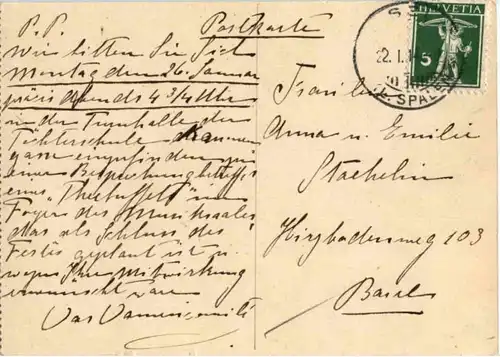 P. P. Postkarte
Wir bitten Sie sich
Montag den 26. Januar
präzis abends 4 3/4 Uhr
in der Turnhalle der
Töchterschule
gasse einzufinden zu
einer Besprechung betreffs
eines "Theebuffets" im
Foyer des Musiksaales
das als Schluss des
Festes geplant ist zu
wozu Ihre Mitwirkung
erwünscht wäre
Das Damencomité
HELVETIA
5
22. I. 1
SPAL
Fräulein
Anna u. Emilie
Staehelin
Hirzbodenweg 103
Basel